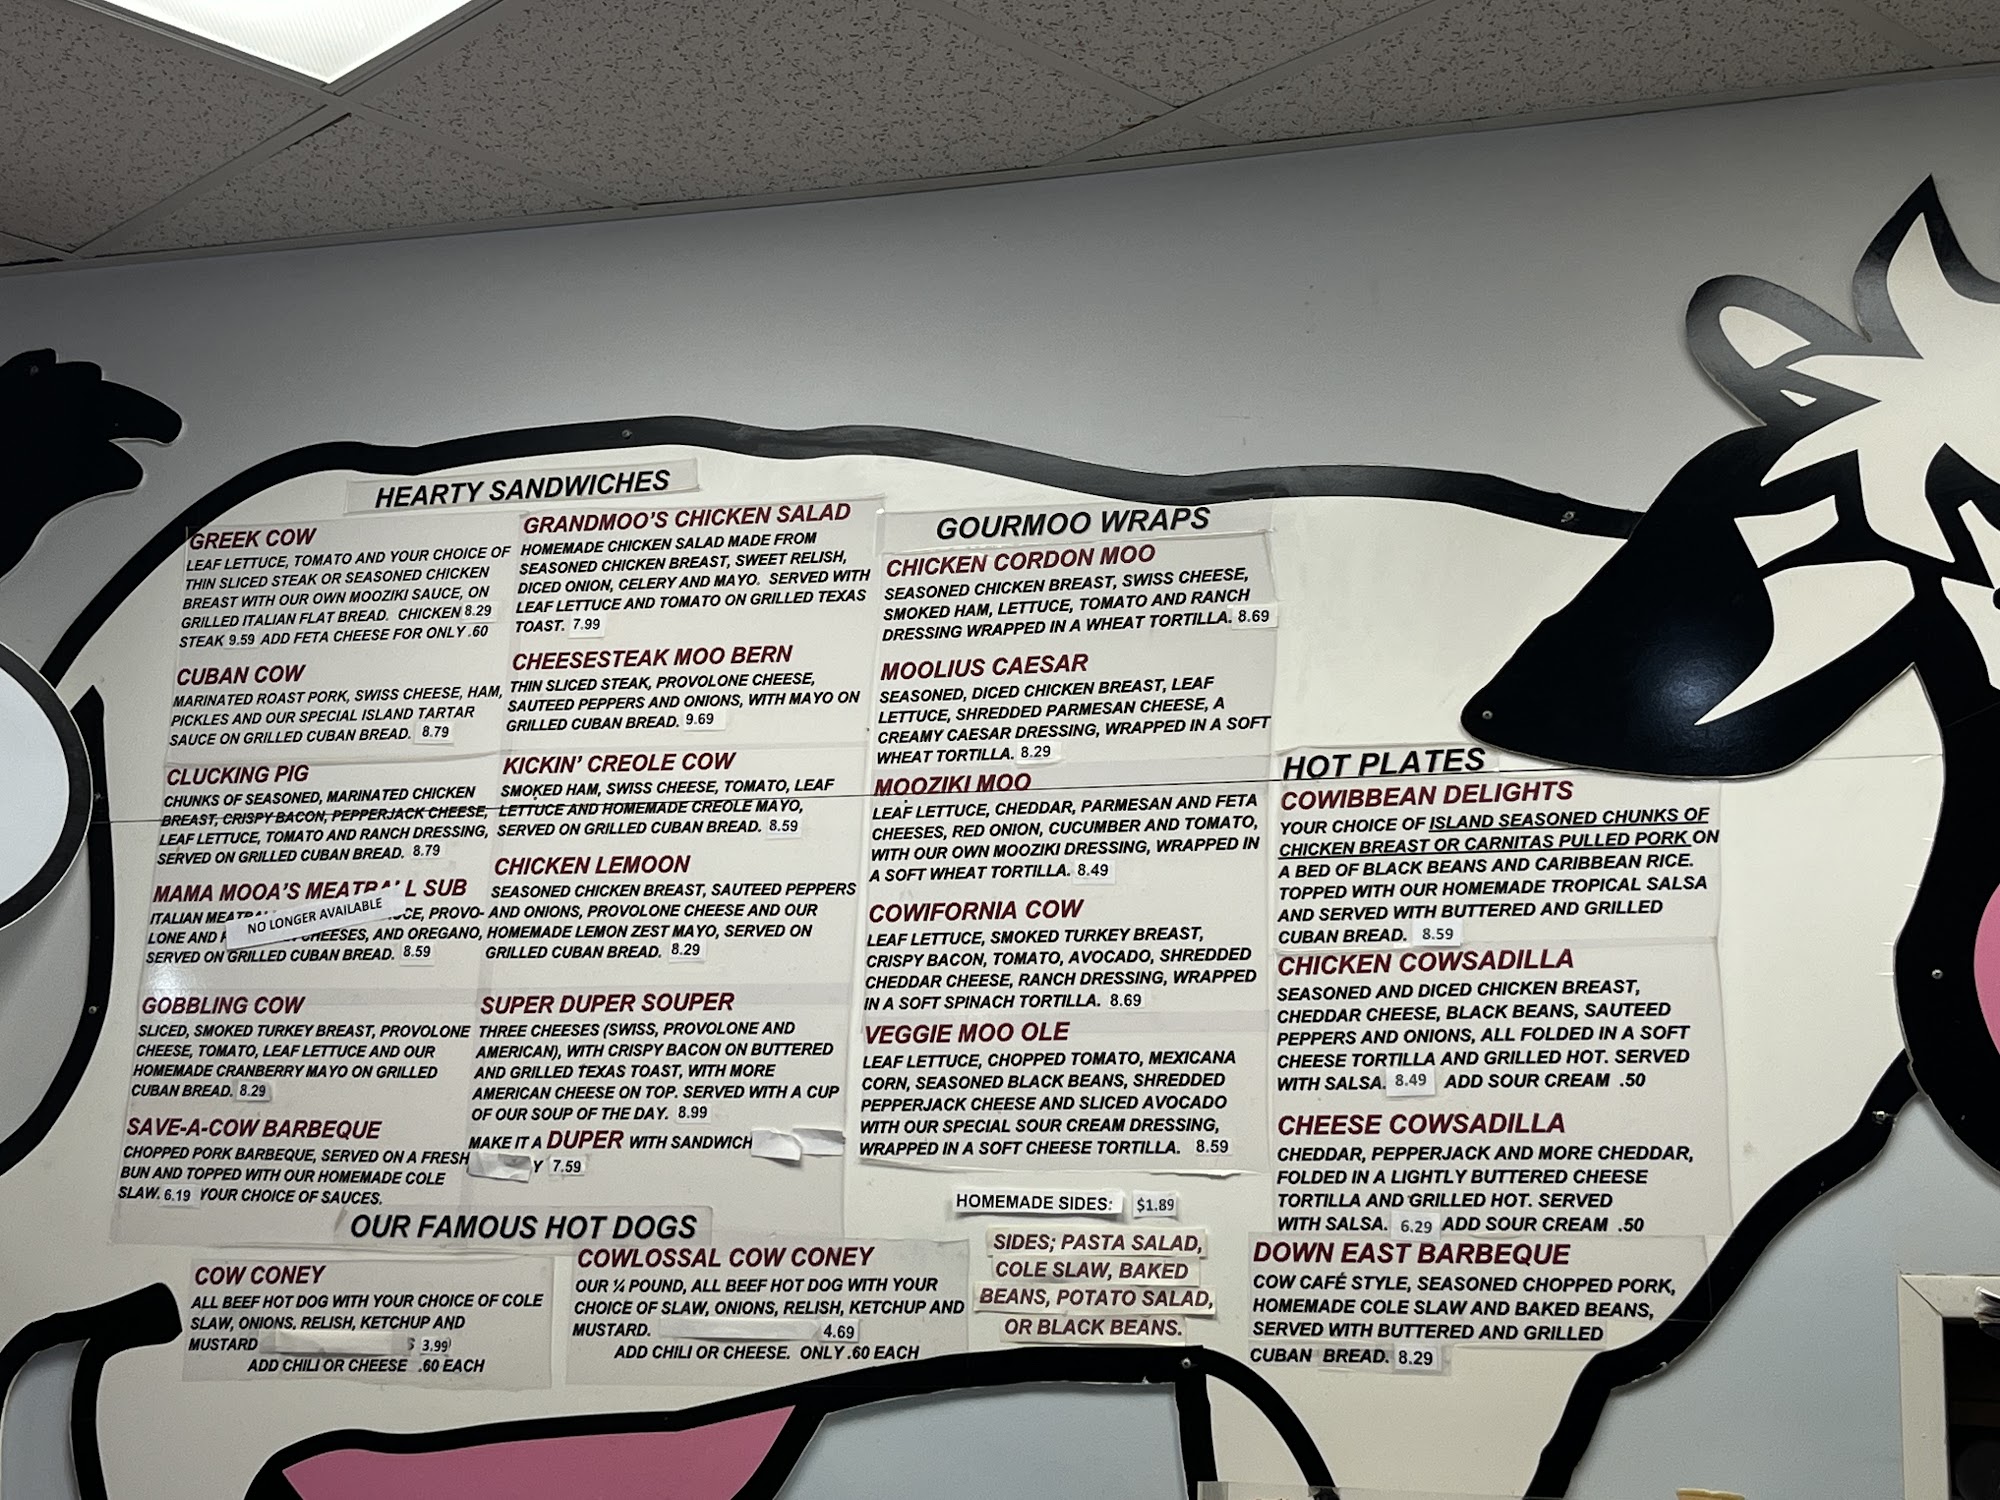 HEARTY SANDWICHES
GREEK COW
LEAF LETTUCE, TOMATO AND YOUR CHOICE OF
THIN SLICED STEAK OR SEASONED CHICKEN
BREAST WITH OUR OWN MOOZIKI SAUCE, ON
GRILLED ITALIAN FLAT BREAD. CHICKEN 8.29
STEAK 9.59 ADD FETA CHEESE FOR ONLY .60
CUBAN COW
MARINATED ROAST PORK, SWISS CHEESE, HAM,
PICKLES AND OUR SPECIAL ISLAND TARTAR
SAUCE ON GRILLED CUBAN BREAD. 8.79
CLUCKING PIG
CHUNKS OF SEASONED, MARINATED CHICKEN
BREAST, CRISPY BACON, PEPPERJACK CHEESE,
LEAF LETTUCE, TOMATO AND RANCH DRESSING,
SERVED ON GRILLED CUBAN BREAD. 8.79
MAMA MOOA'S MEATBALL SUB
ITALIAN PROVO-
NO LONGER AVAILABLE
LONE AND CHEESES, AND OREGANO,
SERVED ON GRILLED CUBAN BREAD. 8.59
GOBBLING COW
SLICED, SMOKED TURKEY BREAST, PROVOLONE
CHEESE, TOMATO, LEAF LETTUCE AND OUR
HOMEMADE CRANBERRY MAYO ON GRILLED
CUBAN BREAD. 8.29
SAVE-A-COW BARBEQUE
CHOPPED PORK BARBEQUE, SERVED ON A FRESH
BUN AND TOPPED WITH OUR HOMEMADE COLE
SLAW. 6.19 YOUR CHOICE OF SAUCES.
GRANDMOO'S CHICKEN SALAD
HOMEMADE CHICKEN SALAD MADE FROM
SEASONED CHICKEN BREAST, SWEET RELISH,
DICED ONION, CELERY AND MAYO. SERVED WITH
LEAF LETTUCE AND TOMATO ON GRILLED TEXAS
TOAST. 7.99
CHEESESTEAK MOO BERN
THIN SLICED STEAK, PROVOLONE CHEESE,
SAUTEED PEPPERS AND ONIONS, WITH MAYO ON
GRILLED CUBAN BREAD. 9.69
KICKIN' CREOLE COW
SMOKED HAM, SWISS CHEESE, TOMATO, LEAF
LETTUCE AND HOMEMADE CREOLE MAYO,
SERVED ON GRILLED CUBAN BREAD. 8.59
CHICKEN LEMOON
SEASONED CHICKEN BREAST, SAUTEED PEPPERS
AND ONIONS, PROVOLONE CHEESE AND OUR
HOMEMADE LEMON ZEST MAYO, SERVED ON
GRILLED CUBAN BREAD. 8.29
SUPER DUPER SOUPER
THREE CHEESES (SWISS, PROVOLONE AND
AMERICAN), WITH CRISPY BACON ON BUTTERED
AND GRILLED TEXAS TOAST, WITH MORE
AMERICAN CHEESE ON TOP. SERVED WITH A CUP
OF OUR SOUP OF THE DAY. 8.99
MAKE IT A DUPER WITH SANDWICH
Y 7.59
GOURMOO WRAPS
CHICKEN CORDON MOO
SEASONED CHICKEN BREAST, SWISS CHEESE,
SMOKED HAM, LETTUCE, TOMATO AND RANCH
DRESSING WRAPPED IN A WHEAT TORTILLA. 8.69
MOOLIUS CAESAR
SEASONED, DICED CHICKEN BREAST, LEAF
LETTUCE, SHREDDED PARMESAN CHEESE, A
CREAMY CAESAR DRESSING, WRAPPED IN A SOFT
WHEAT TORTILLA. 8.29
MOOZIKI MOO
LEAF LETTUCE, CHEDDAR, PARMESAN AND FETA
CHEESES, RED ONION, CUCUMBER AND TOMATO,
WITH OUR OWN MOOZIKI DRESSING, WRAPPED IN
A SOFT WHEAT TORTILLA. 8.49
COWIFORNIA COW
LEAF LETTUCE, SMOKED TURKEY BREAST,
CRISPY BACON, TOMATO, AVOCADO, SHREDDED
CHEDDAR CHEESE, RANCH DRESSING, WRAPPED
IN A SOFT SPINACH TORTILLA. 8.69
VEGGIE MOO OLE
LEAF LETTUCE, CHOPPED TOMATO, MEXICANA
CORN, SEASONED BLACK BEANS, SHREDDED
PEPPERJACK CHEESE AND SLICED AVOCADO
WITH OUR SPECIAL SOUR CREAM DRESSING,
WRAPPED IN A SOFT CHEESE TORTILLA. 8.59
HOMEMADE SIDES: $1.89
SIDES; PASTA SALAD,
COLE SLAW, BAKED
BEANS, POTATO SALAD,
OR BLACK BEANS.
HOT PLATES
COWIBBEAN DELIGHTS
YOUR CHOICE OF ISLAND SEASONED CHUNKS OF
CHICKEN BREAST OR CARNITAS PULLED PORK ON
A BED OF BLACK BEANS AND CARIBBEAN RICE.
TOPPED WITH OUR HOMEMADE TROPICAL SALSA
AND SERVED WITH BUTTERED AND GRILLED
CUBAN BREAD. 8.59
CHICKEN COWSADILLA
SEASONED AND DICED CHICKEN BREAST,
CHEDDAR CHEESE, BLACK BEANS, SAUTEED
PEPPERS AND ONIONS, ALL FOLDED IN A SOFT
CHEESE TORTILLA AND GRILLED HOT. SERVED
WITH SALSA. 8.49 ADD SOUR CREAM .50
CHEESE COWSADILLA
CHEDDAR, PEPPERJACK AND MORE CHEDDAR,
FOLDED IN A LIGHTLY BUTTERED CHEESE
TORTILLA AND GRILLED HOT. SERVED
WITH SALSA. 6.29 ADD SOUR CREAM .50
DOWN EAST BARBEQUE
COW CAFÉ STYLE, SEASONED CHOPPED PORK,
HOMEMADE COLE SLAW AND BAKED BEANS,
SERVED WITH BUTTERED AND GRILLED
CUBAN BREAD. 8.29
OUR FAMOUS HOT DOGS
COW CONEY
ALL BEEF HOT DOG WITH YOUR CHOICE OF COLE
SLAW, ONIONS, RELISH, KETCHUP AND
MUSTARD $ 3.99
ADD CHILI OR CHEESE .60 EACH
COWLOSSAL COW CONEY
OUR ¼ POUND, ALL BEEF HOT DOG WITH YOUR
CHOICE OF SLAW, ONIONS, RELISH, KETCHUP AND
MUSTARD. 4.69
ADD CHILI OR CHEESE. ONLY .60 EACH